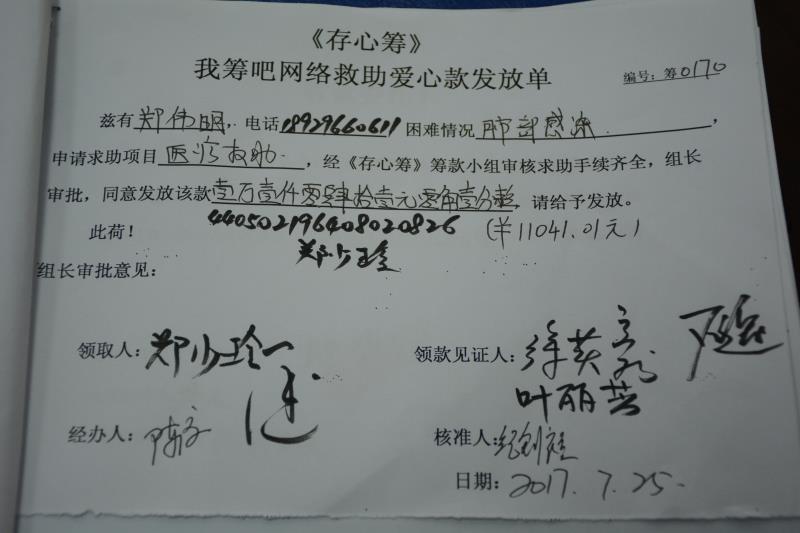 《存心筹》
我筹吧网络救助爱心款发放单
编号:筹0170
兹有郑伟明,电话18929660611困难情况肺部感染,
申请求助项目医疗救助,经《存心筹》筹款小组审核求助手续齐全,组长
审批,同意发放该款壹万壹仟零肆拾壹元零角壹分整,请给予发放。
此荷!
440502196408020826
(¥11041.01元)
郑少玲
组长审批意见:
领取人:郑少玲
领款见证人:徐英
叶丽芸
经办人:陈
核准人:
日期:2017.7.25.